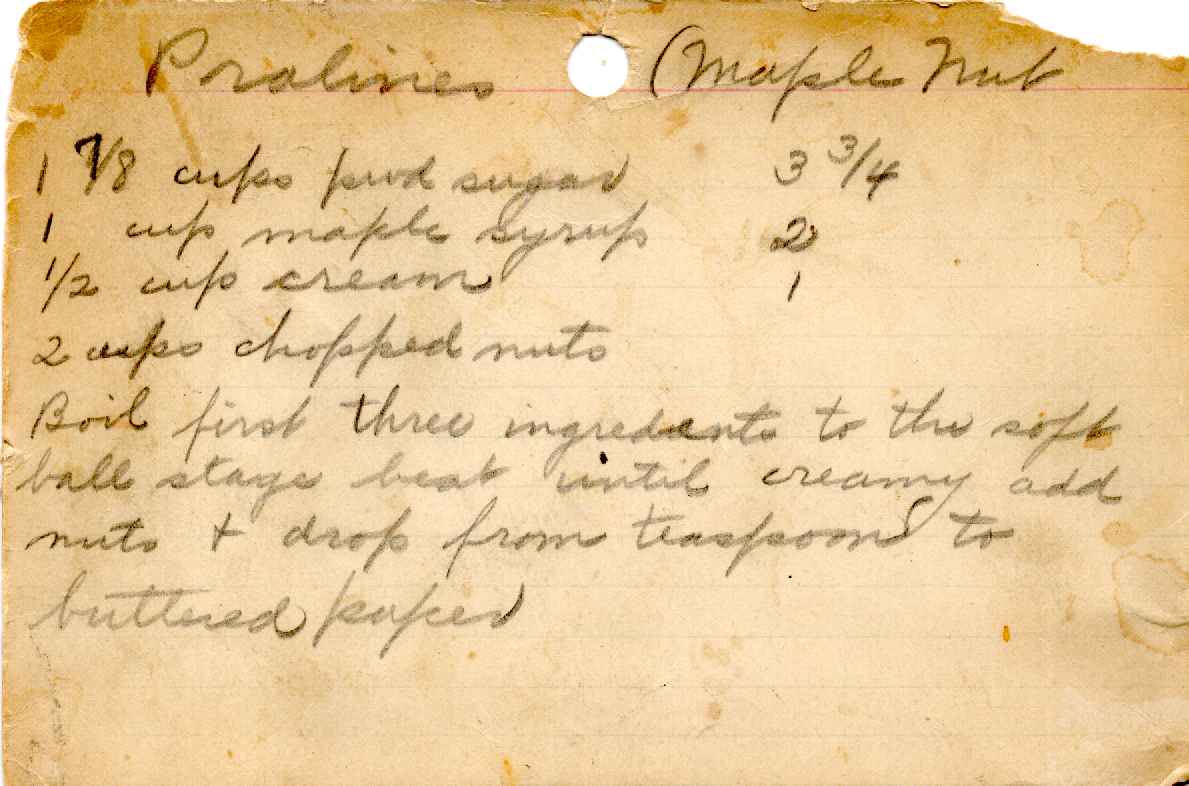 Pralines (Maple Nut
1 7/8 cups pwd sugar 3 3/4
1 cup maple syrup 2
1/2 cup cream 1
2 cups chopped nuts
Boil first three ingredients to the soft
ball stage beat until creamy add
nuts + drop from teaspoon to
buttered paper